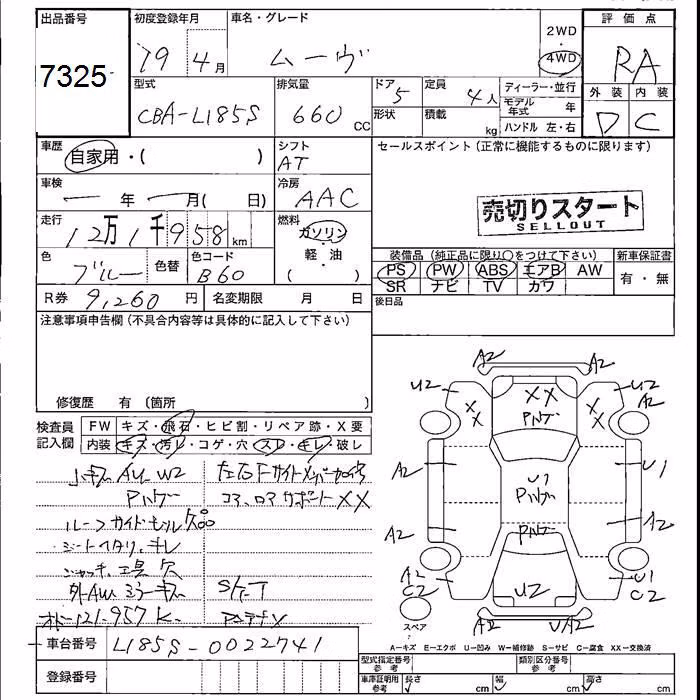 出品番号 初度登録年月 車名・グレード 2WD ・ 4WD 評価点
7325 19年4月 ムーヴ RA
型式 排気量 ドア 定員 ディーラー・並行 外装 内装
CBA-L185S 660 CC 5 4人 モデル年式 年 D C
形状 積載 kg ハンドル 左・右
車歴 自家用・( ) シフト AT セールスポイント(正常に機能するものに限ります)
車検 年 月( 日) 冷房 AAC
売切りスタート
SELLOUT
走行 12万1千958km 燃料 ガソリン・軽油 ( )
色 ブルー 色替 色コード B60
装備品(純正品に限り○をつけて下さい) 新車保証書
PS PW ABS エアB AW 有・無
SR ナビ TV カワ
R券 9,260円 名変期限 月 日 後日品
注意事項申告欄(不具合内容等は具体的に記入して下さい)
修復歴 有(箇所 )
検査員記入欄 FW キズ・飛石・ヒビ割・リペア跡・X要
内装 キズ・汚レ・コゲ・穴・スレ・キレ・破レ
小キズ AU W2
コア、ロアサポート XX
ルーフサイドモール
シートヘタリ、キレ
ジャッキ工具欠
S/T
121-957K
A2 A2
U2 XX XX XX U2 A2
A2 U1 U1
A2 A2
A2 C2 U2 U1 C2
スペア A2 UA2
A-キズ E-エクボ U-凹み W-補修跡 S-サビ C-腐食 XX-交換済
車台番号 L185S-0022741
型式指定番号 参考 類別区分番号 参考
登録番号 車庫証明用 参考 長さ cm 幅 cm 高さ cm